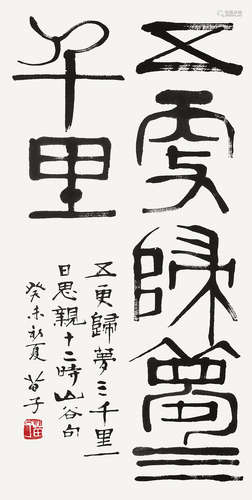 五更歸夢三
千里
五更歸夢三千里一
日思親十二時山谷句
癸未初夏苗子